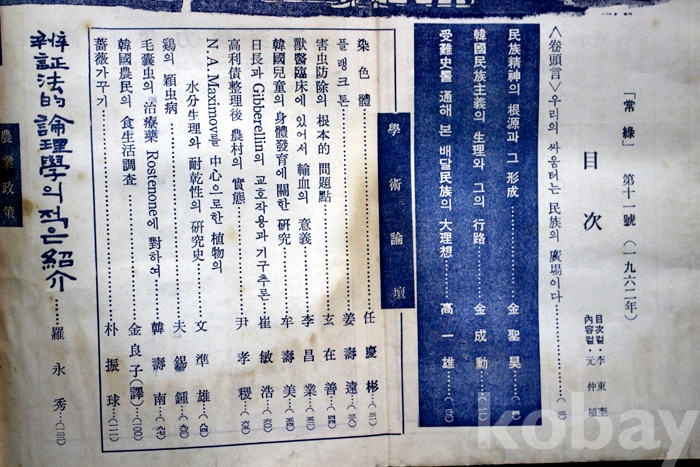 「常綠」 第十一號 (一九六二年)
目次
目次컽·李東奎
內容컽·元仲植
<卷頭言> 우리의 싸움터는 民族의 廣場이다
民族精神의 根源과 그 形成 金聖昊
韓國民族主義의 生理와 그의 行路 金成勳
受難史를 通해 본 배달民族의 大理想 高一雄
學術論壇
染色體 任慶彬
플랭크톤 姜壽遠
害虫防除의 根本的 問題點 玄在善
獸醫臨床에 있어서 輸血의 意義 李昌業
韓國兒童의 身體發育에 關한 硏究 牟壽美
日長과 Gibberellin의 교호작용과 기구추론 崔敏浩
高利債整理後 農村의 實態 尹孝稷
N.A.Maximov를 中心으로한 植物의
水分生理와 耐乾性의 硏究史 文準雄
鷄의 顆虫病 夫錫鍾
毛囊虫의 治療藥 Rostenone에 對하여 韓壽南
韓國農民의 食生活調査 金良子(譯)
薔薇가꾸기 朴振球
辨証法的 論理學의 적은 紹介 羅永秀
農業政策
kobay